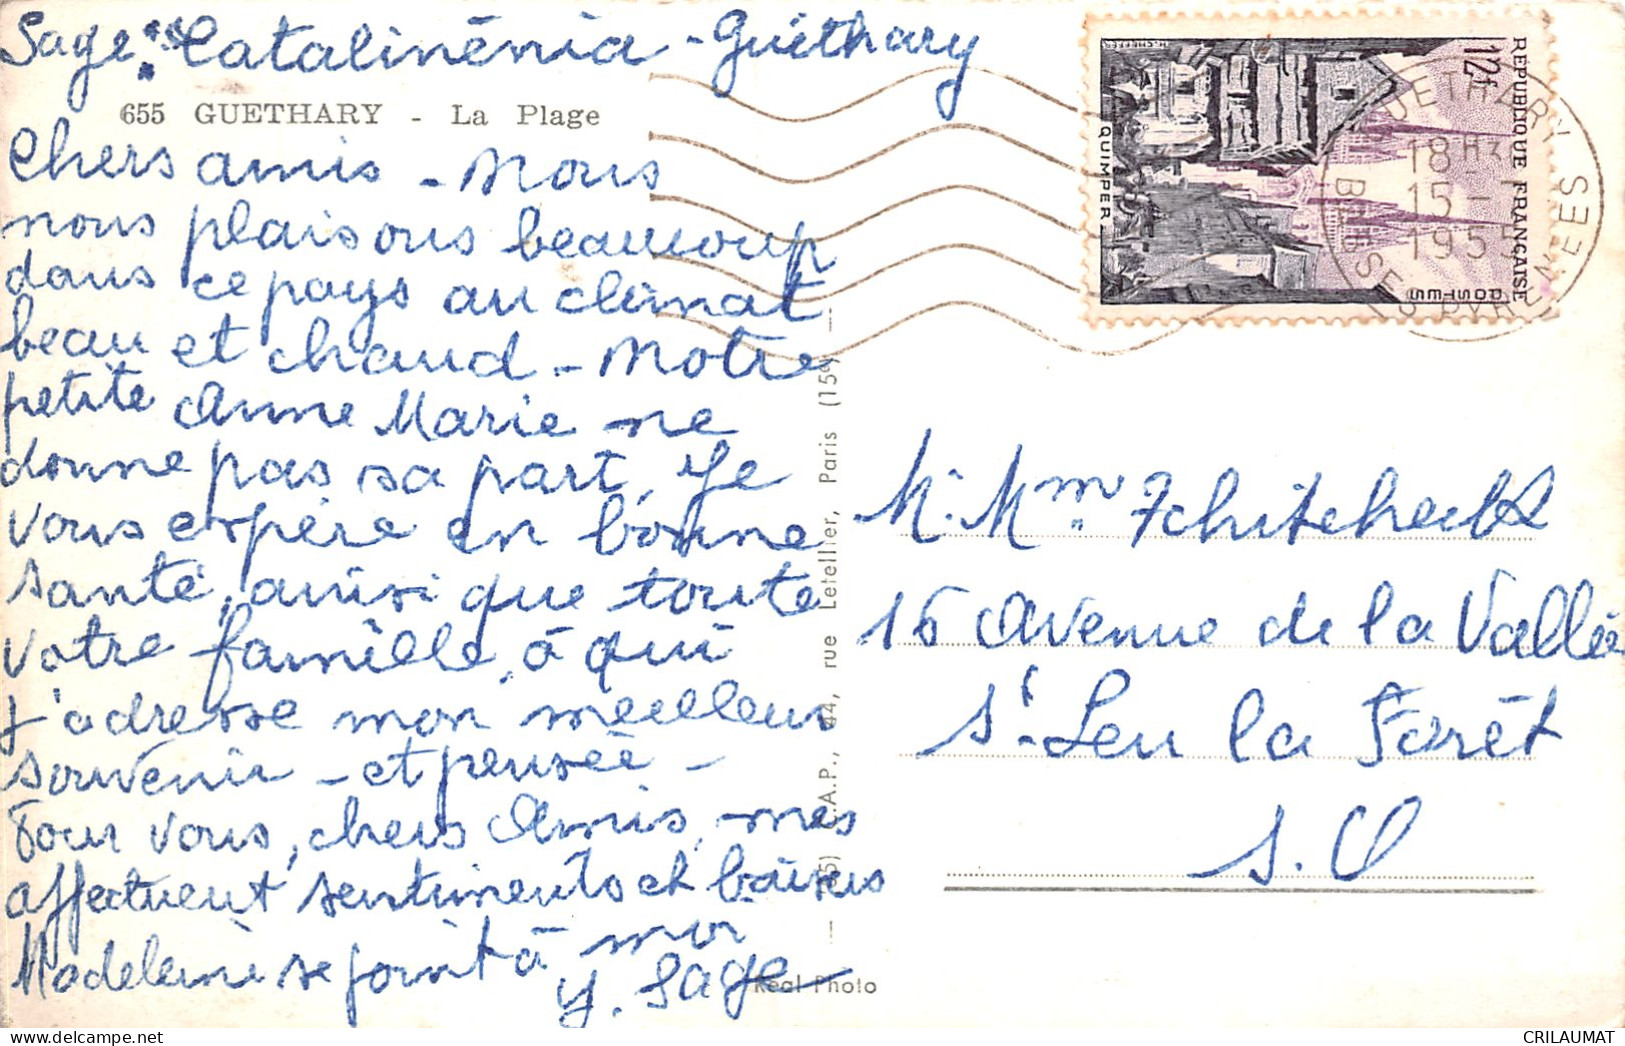 Sage "Catalinénia - Guéthary
655 GUETHARY - La Plage
Chers amis - Nous
nous plaisons beaucoup
dans ce pays au climat
beau et chaud - Notre
petite Anne Marie ne
donne pas sa part, Je
vous espère en bonne
santé, ainsi que toute
votre famille, à qui
j'adresse mon meilleur
souvenir - et pensée -
Pour vous, chers Amis, mes
affectueux sentiments et baisers
Madeleine se joint à moi
Y. Sage
Real-Photo
A.P., 44, rue Letellier, Paris (15e) —
REPUBLIQUE FRANÇAISE
POSTES
12f
QUIMPER
GUETHARY
18H30
15 - 7
1955
BASSES PYRENEES
M. Mme
16 Avenue de la Vallée
St. Leu la Forêt
S. O
CRILAUMAT